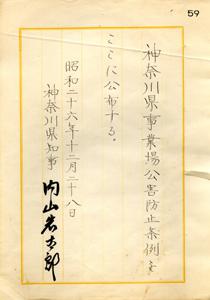 59
神奈川県事業場公害防止条例を
ここに公布する。
昭和二十六年十二月二十八日
神奈川県知事 内山岩太郎